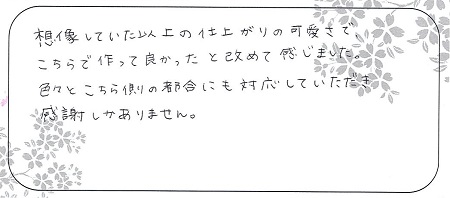 想像していた以上の仕上がりの可愛さで、
こちらで作って良かったと改めて感じました。
色々とこちら側の都合にも対応していただき
感謝しかありません。